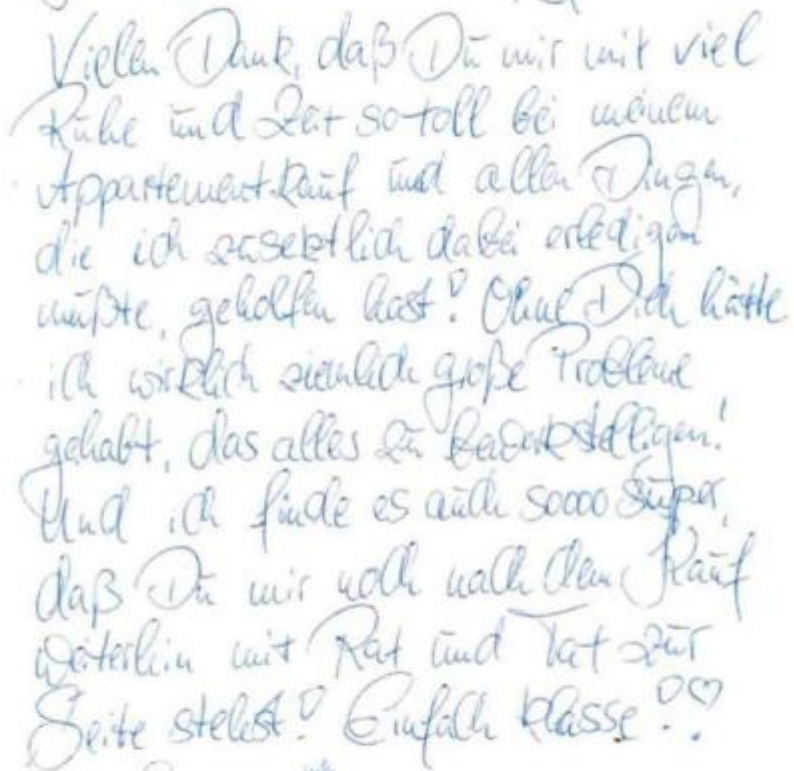 Vielen Dank, daß Du mir mit viel
Ruhe und Zeit so toll bei meinem
Appartement-Kauf und allen Dingen,
die ich zusetzlich dabei erledigen
mußte, geholfen hast! Ohne Dich hätte
ich wirklich ziemlich große Probleme
gehabt, das alles zu bewerkstelligen!
Und ich finde es auch soooo super,
daß Du mir noch nach dem Kauf
weiterhin mit Rat und Tat zur
Seite stehst! Einfach klasse!! ♡